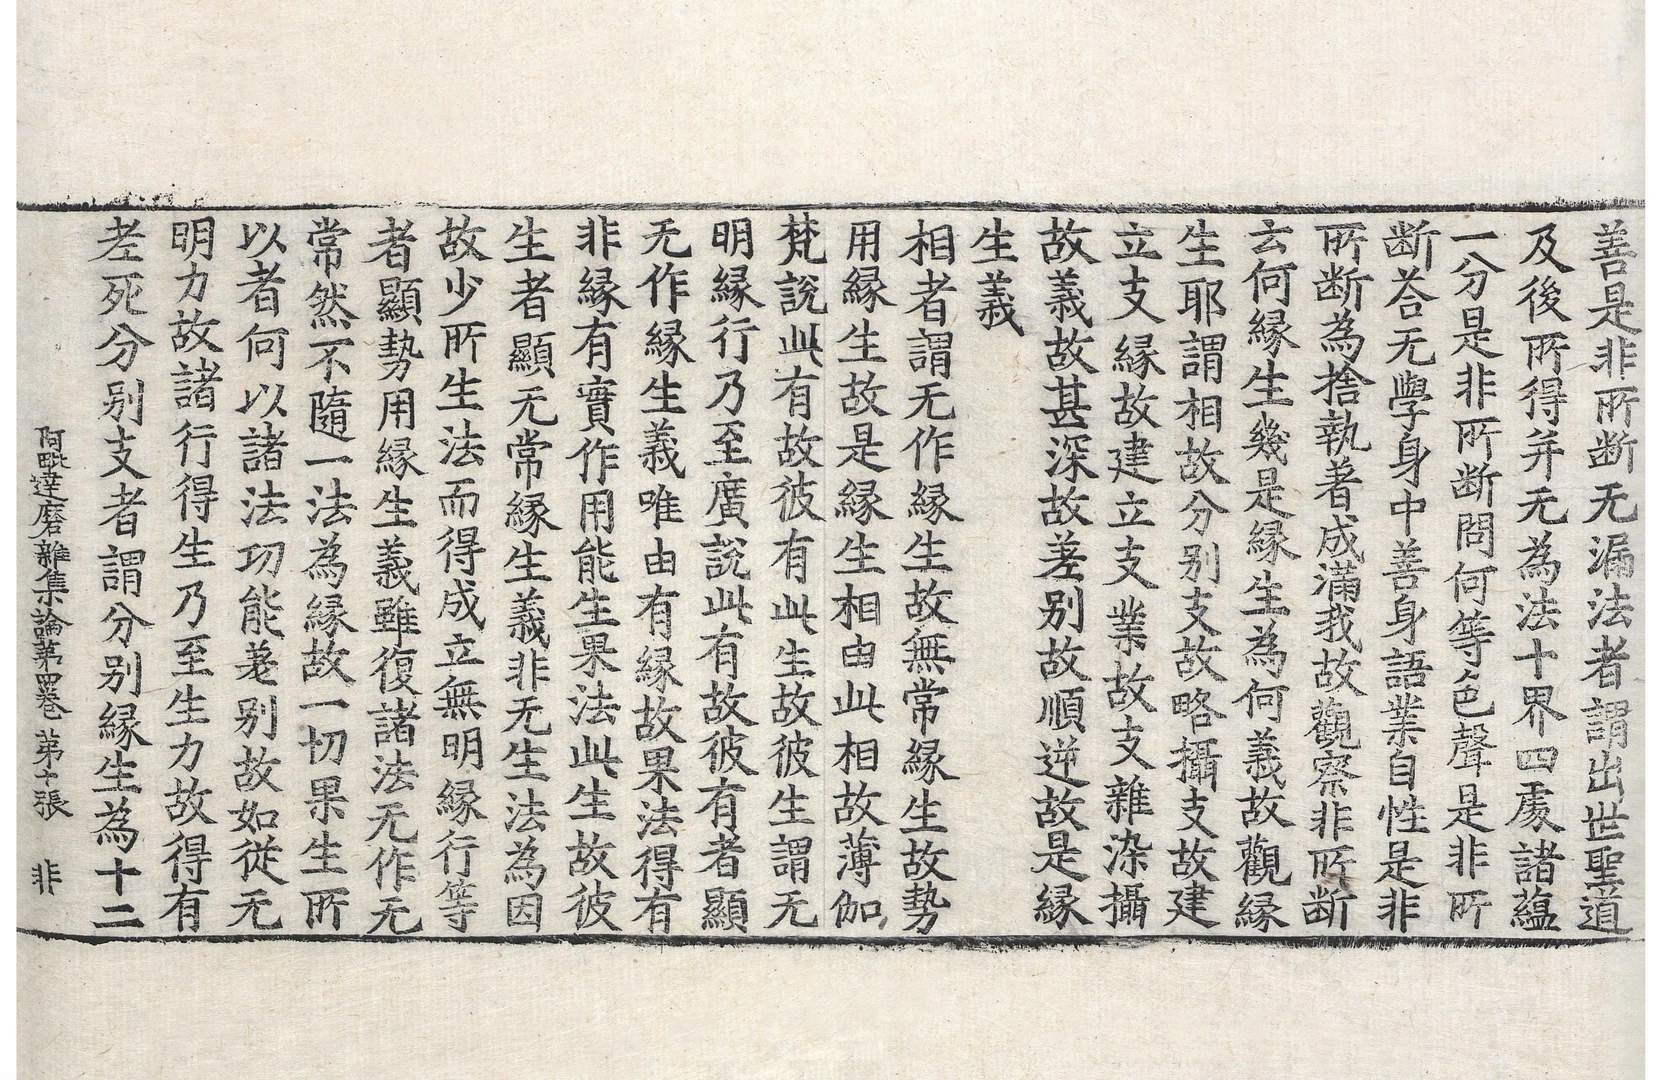 善是非所断无漏法者謂出世聖道
及後所得并无為法十界四處諸蘊
一分是非所断問何等色聲是非所
断荅无學身中善身語業自性是非
所断為捨執著成滿我故觀察非所断
云何緣生幾是緣生為何義故觀緣
生耶謂相故分别支故略攝支故建
立支緣故建立支業故支雜染攝
故義故甚深故差别故順逆故是緣
生義
相者謂无作緣生故無常緣生故勢
用緣生故是緣生相由此相故薄伽
梵說此有故彼有此生故彼生謂无
明緣行乃至廣說此有故彼有者顯
无作緣生義唯由有緣故果法得有
非緣有實作用能生果法此生故彼
生者顯无常緣生義非无生法為因
故少所生法而得成立無明緣行等
者顯勢用緣生義雖復諸法无作无
常然不隨一法為緣故一切果生所
以者何以諸法功能差别故如從无
明力故諸行得生乃至生力故得有
老死分别支者謂分别緣生為十二
阿毗達磨雜集論第四卷 第十張 非